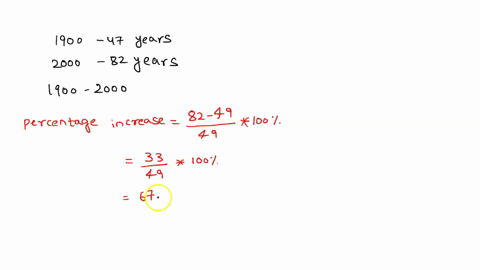 1900 - 47 years
2000 - 82 years
1900 - 2000
percentage increase = 82-49/49 * 100%
= 33/49 * 100%
= 67.